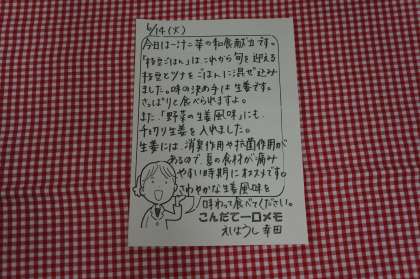 6/14(火)
今日は一汁二菜の和食献立です。
「枝豆ごはん」は これから旬を迎える
枝豆とツナを ごはんに混ぜ込み
ました。味の決め手は 生姜です。
さっぱりと食べられますよ。
また、「野菜の生姜風味」にも
千切り生姜を入れました。
生姜には、消臭作用や抗菌作用が
あるので、夏の食材が痛み
やすい時期にオススメです。
さわやかな生姜風味を
味わって食べてください。
こんだて一口メモ
えいようし 幸田